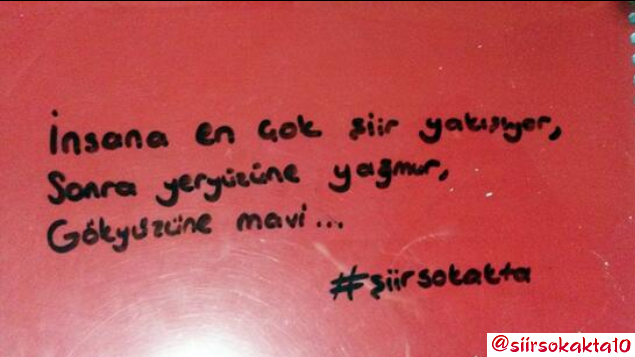 İnsana en çok şiir yakışıyor,
Sonra yeryüzüne yağmur,
Gökyüzüne mavi...
#şiirsokakta
@siirsokakta10